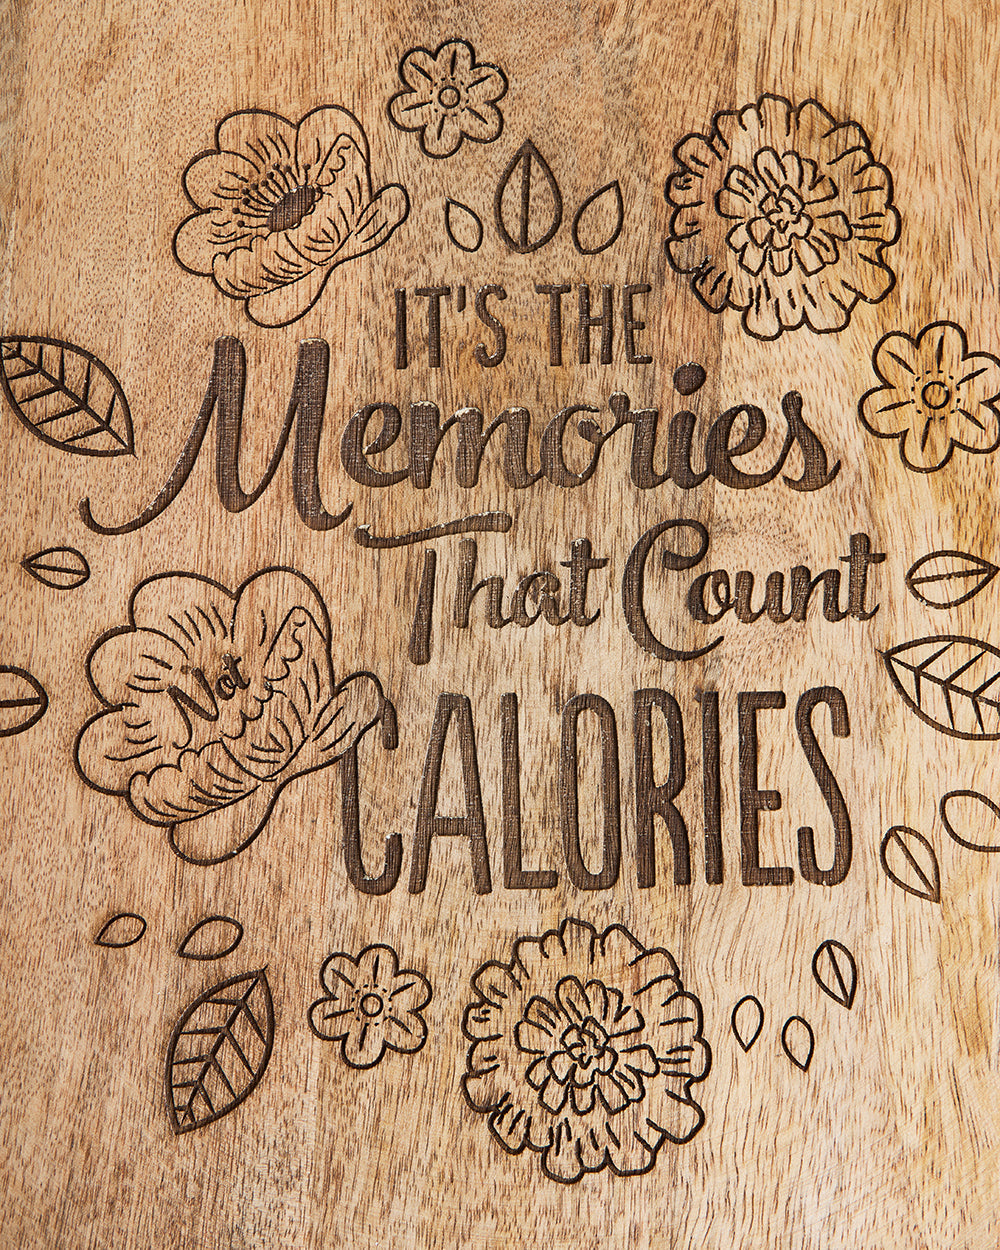 IT'S THE
Memories
That Count
Not
CALORIES